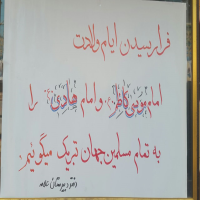 فرا رسیدن ایام ولادت
امام موسی کاظم و امام هادی را
به تمام مسلمین جهان تبریک میگوئیم.